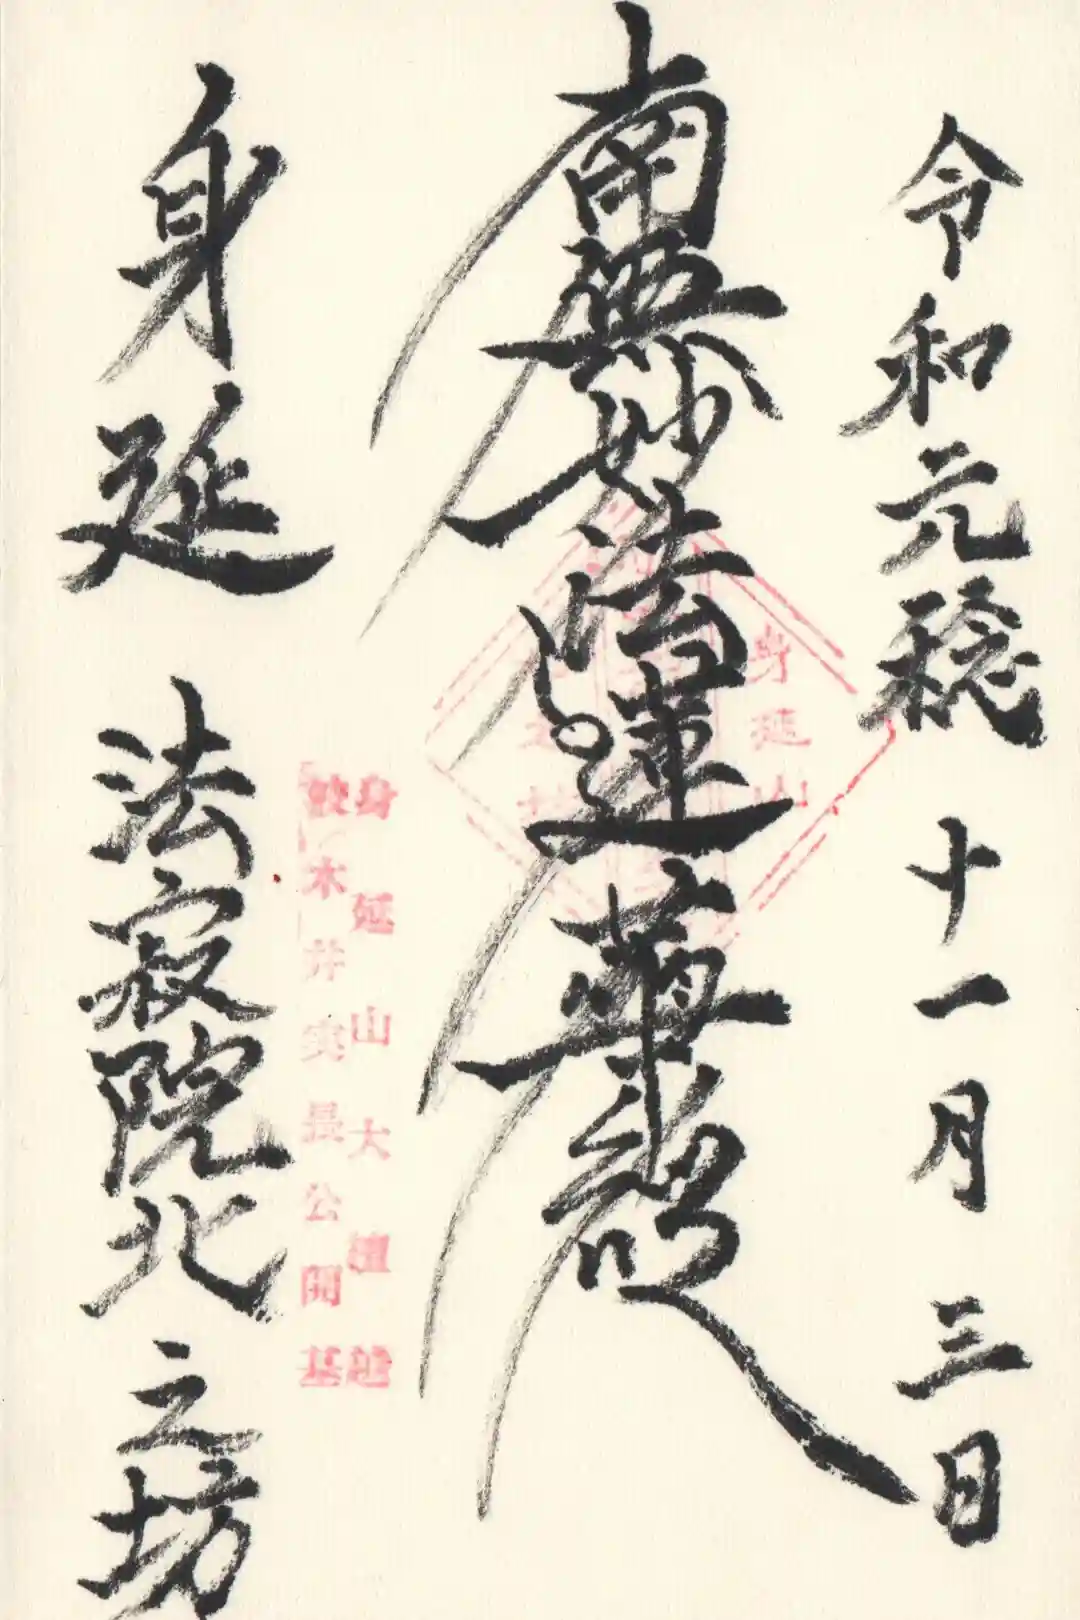 令和元稔 十一月 三日
南無妙法蓮華経
身延山
之坊
身延山大檀越
波木井実長公開基
身延 法寂院北之坊